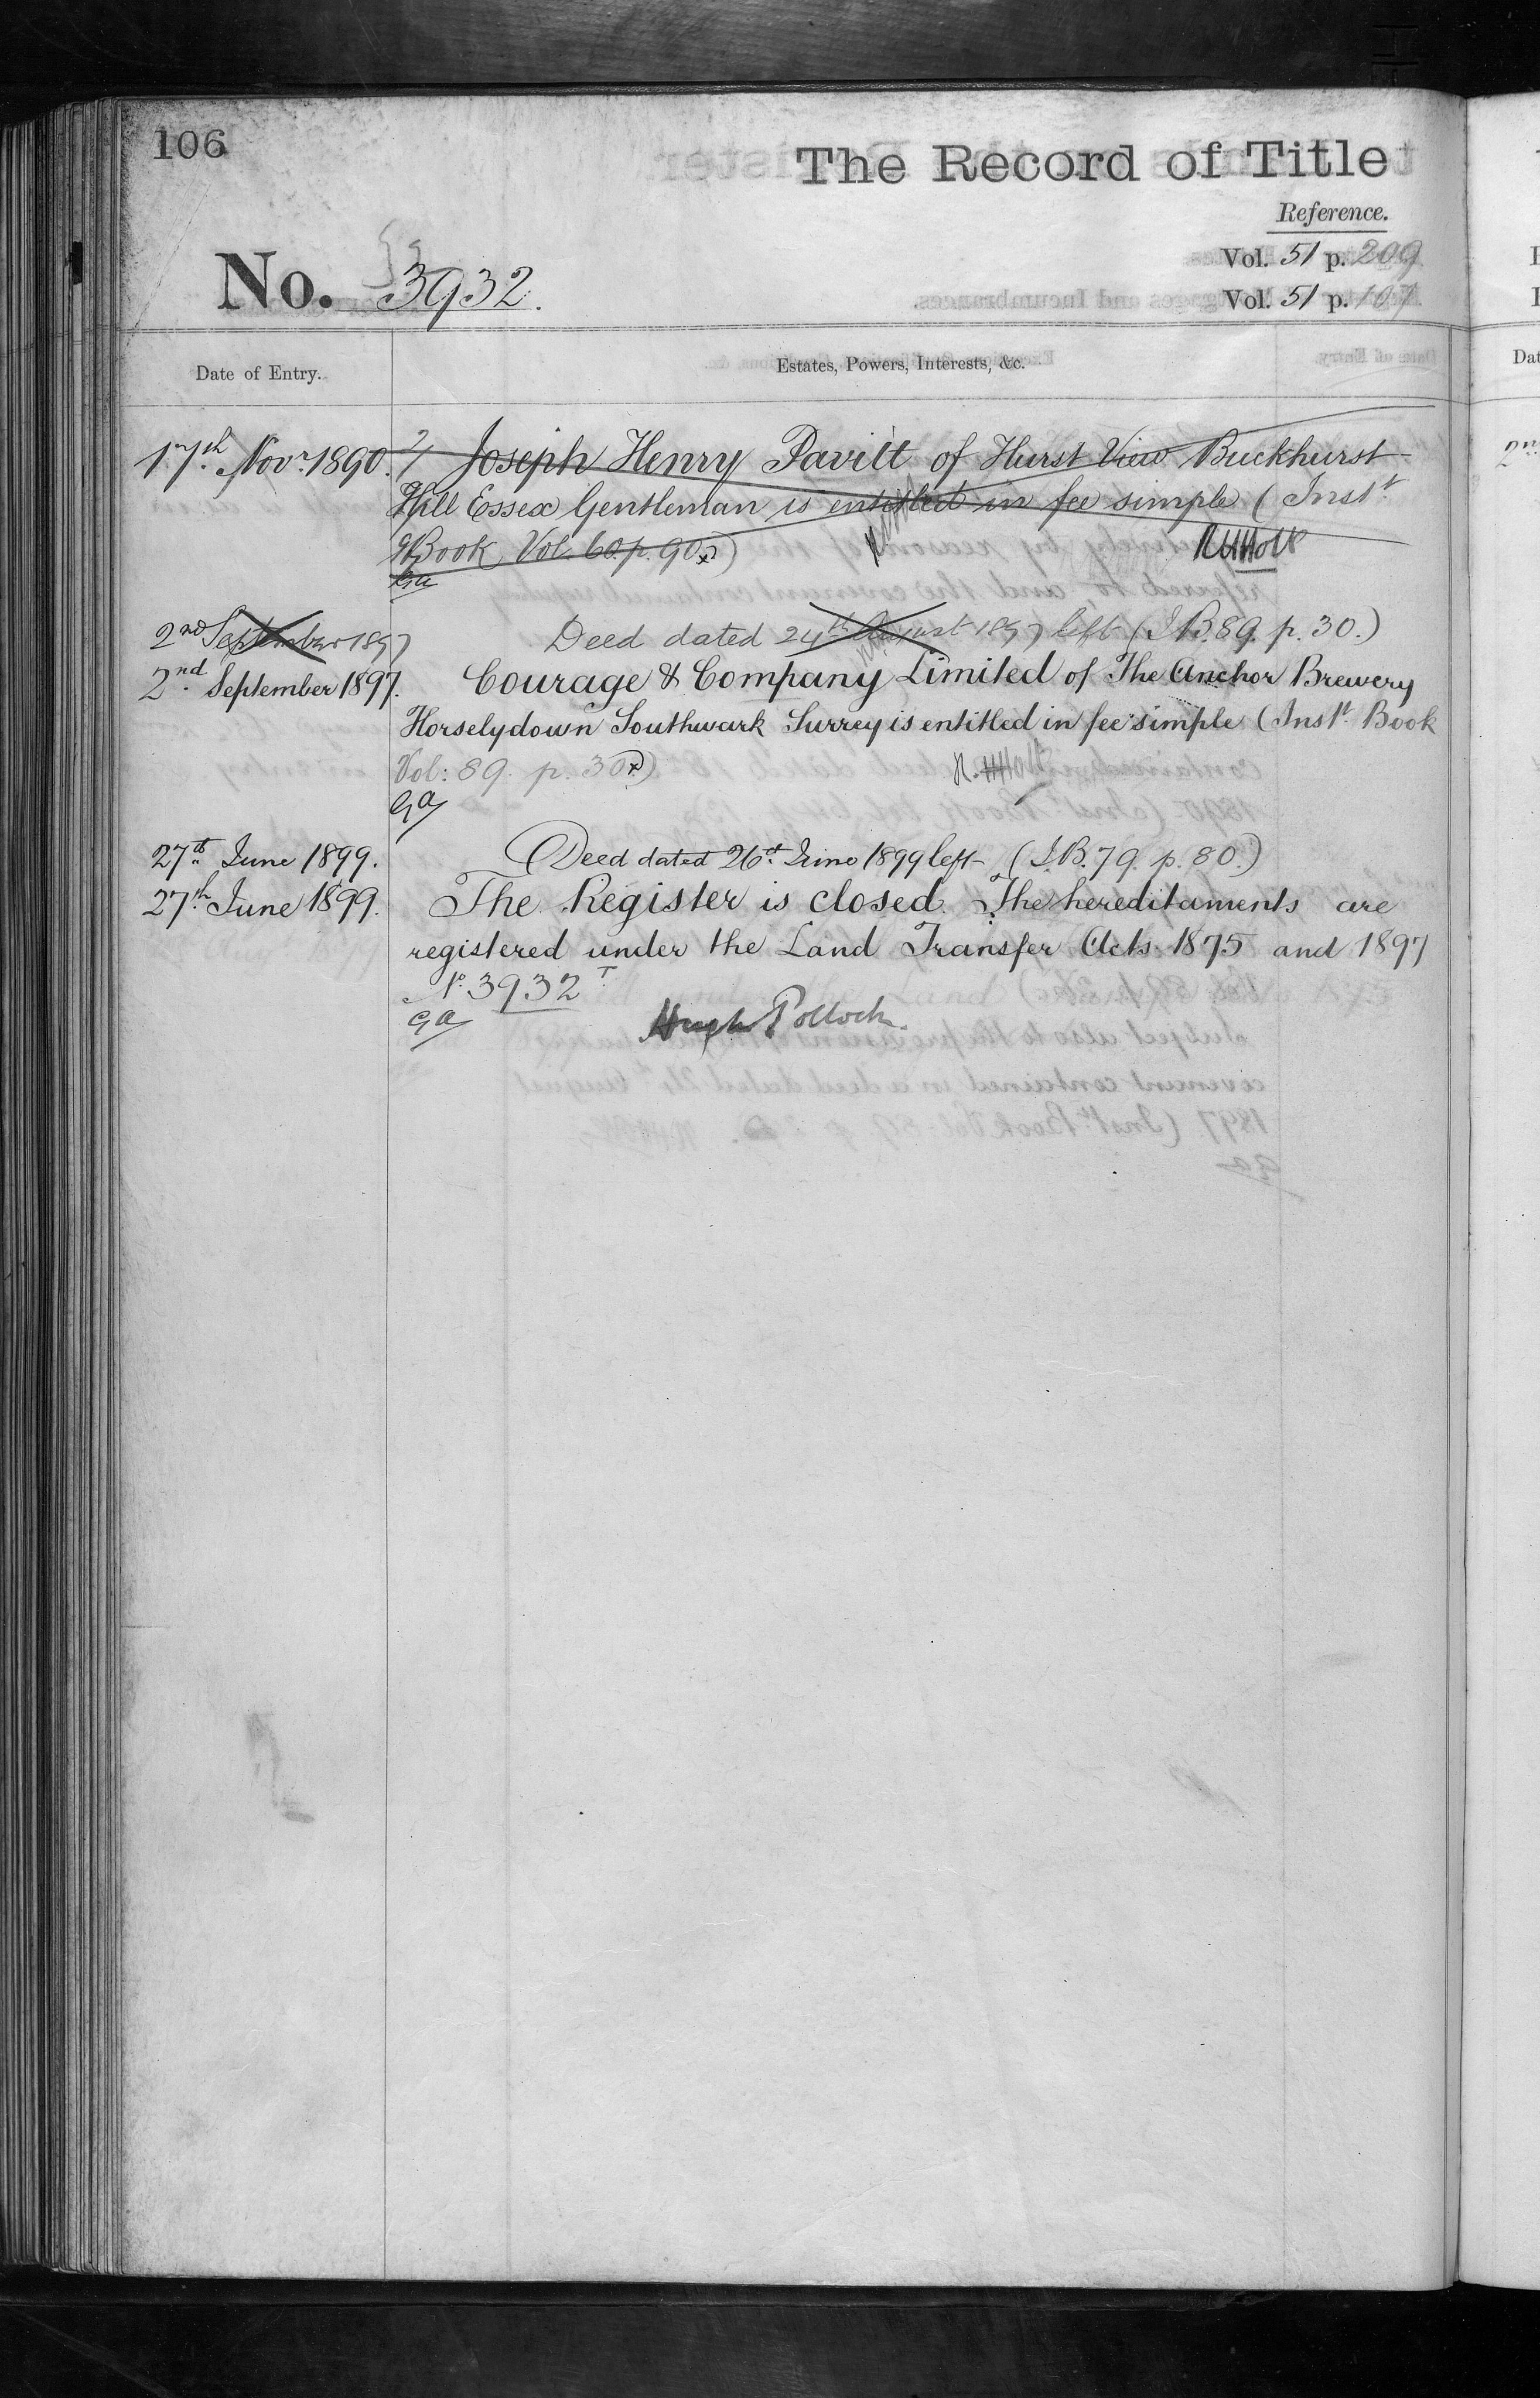 106
The Record of Title
Reference.
No. 3932.
Vol. 51 p. 209
Vol. 51 p. 107
Date of Entry.
Estates, Powers, Interests, &c.
17th Novr 1890. Joseph Henry Pavitt of Hurst View Buckhurst
Hill Essex Gentleman is entitled in fee simple (Inst
Book Vol. 60. p. 90)
RHHolt
Ga
2nd September 1897 Deed dated 24th August 1897 left (I.B. 89. p. 30.)
2nd September 1897. Courage & Company Limited of The Anchor Brewery
Horselydown Southwark Surrey is entitled in fee simple (Inst Book
Vol: 89. p. 30) R.HHolt
Ga
27th June 1899. Deed dated 26th June 1899 left (I.B. 79. p. 80.)
27th June 1899. The Register is closed. The hereditaments are
registered under the Land Transfer Acts 1875 and 1897
No. 3932 T
Ga Hugh Pollock.